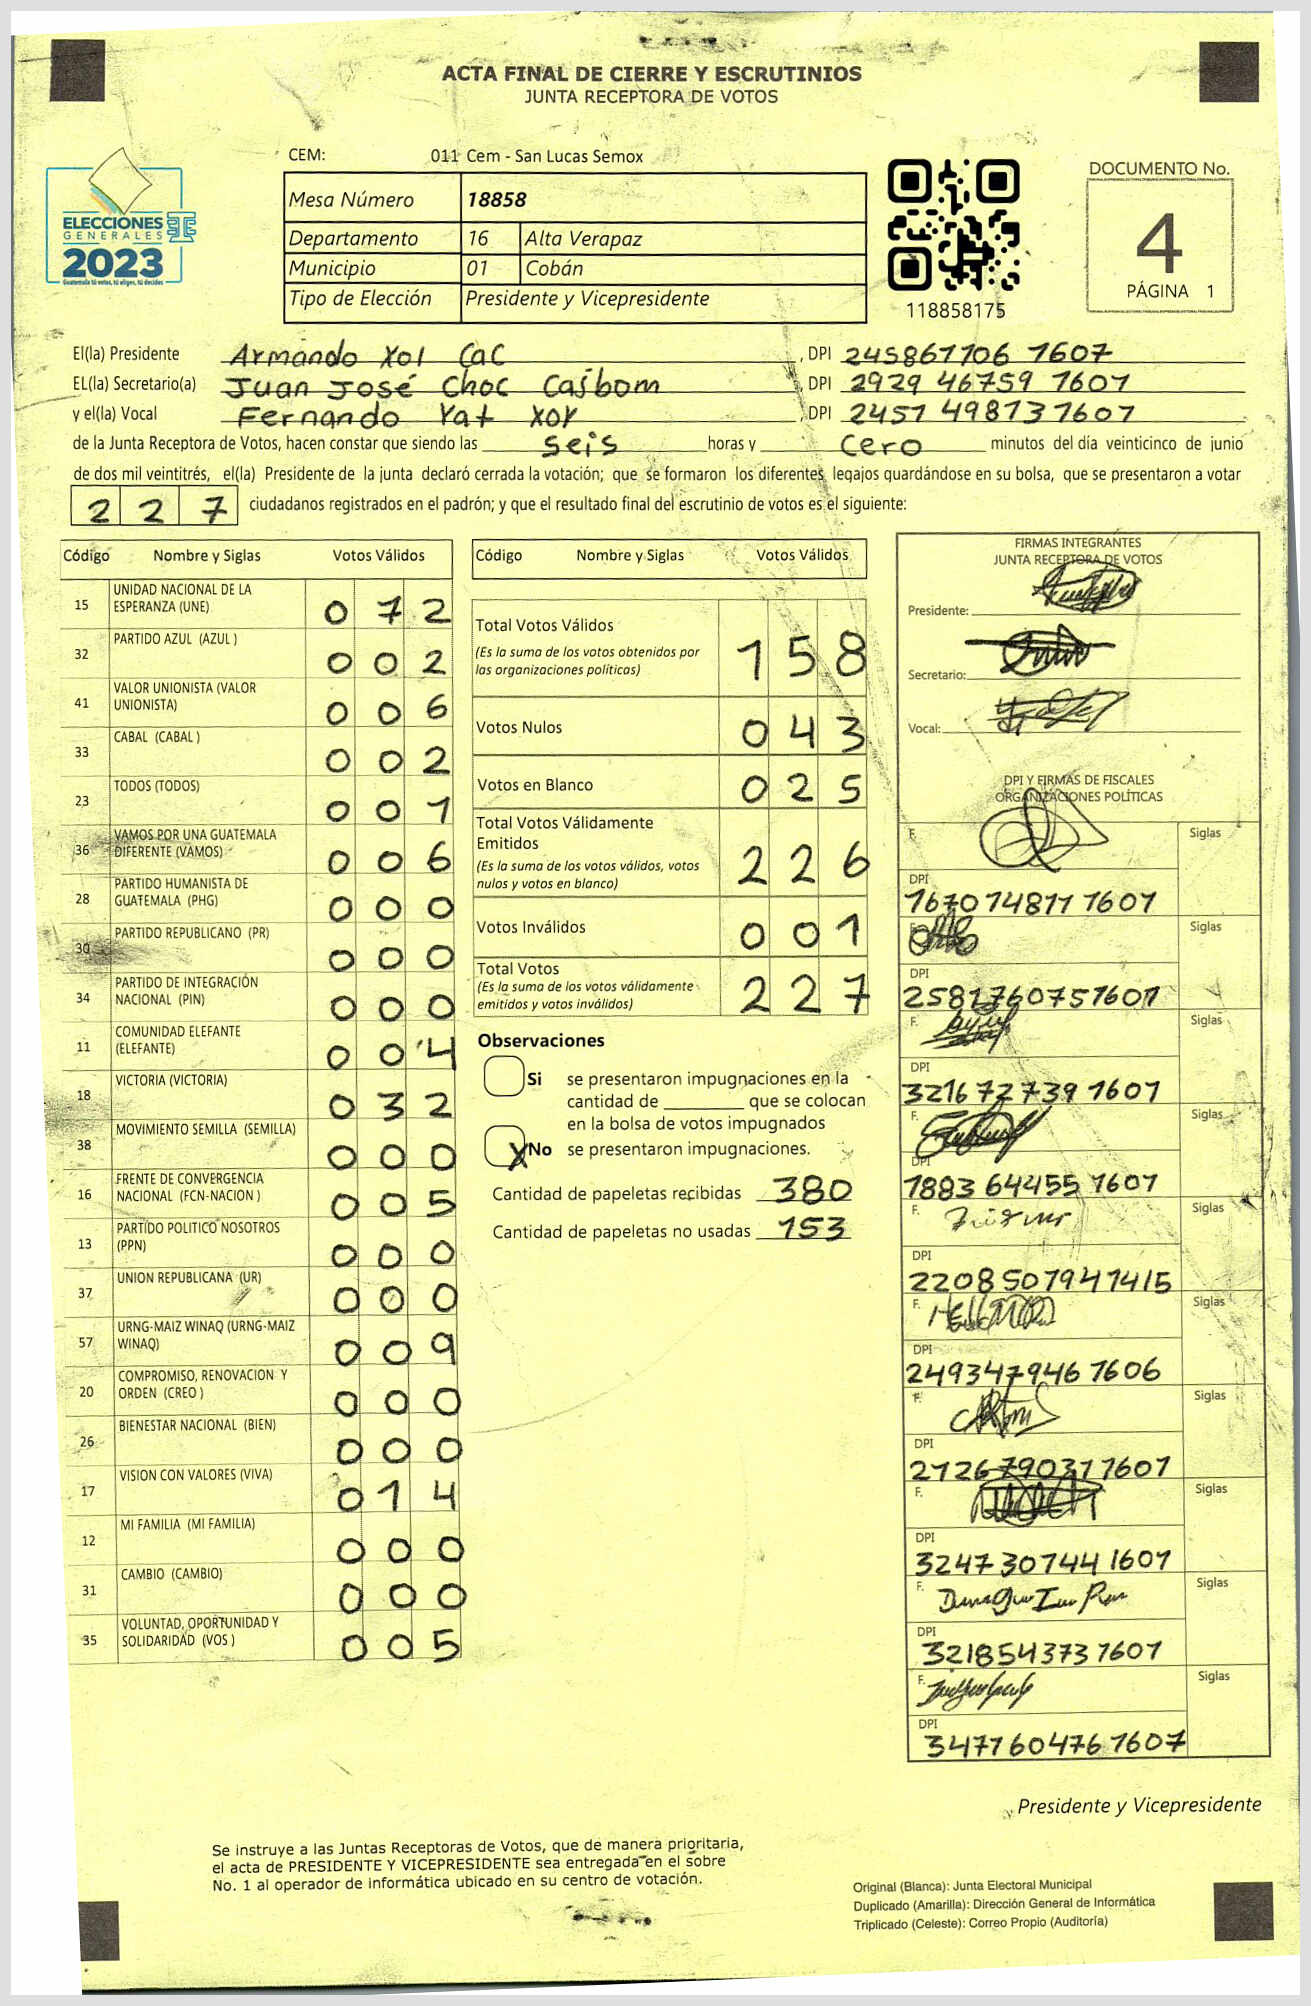 ACTA FINAL DE CIERRE Y ESCRUTINIOS
JUNTA RECEPTORA DE VOTOS
CEM: 011 Cem - San Lucas Semox
ELECCIONES
GENERALES
2023
Guatemala tú votas, tú eliges, tú decides
Mesa Número 18858
Departamento 16 Alta Verapaz
Municipio 01 Cobán
Tipo de Elección Presidente y Vicepresidente
118858175
DOCUMENTO No.
4
PÁGINA 1
El(la) Presidente Armando Xol Cac , DPI 245861106 1607
EL(la) Secretario(a) Juan José Choc Caíbom , DPI 2929 46759 1601
y el(la) Vocal Fernando Yat Xoy , DPI 2451 498731607
de la Junta Receptora de Votos, hacen constar que siendo las seis horas y cero minutos del día veinticinco de junio
de dos mil veintitrés, el(la) Presidente de la junta declaró cerrada la votación; que se formaron los diferentes legajos guardándose en su bolsa, que se presentaron a votar
227 ciudadanos registrados en el padrón; y que el resultado final del escrutinio de votos es el siguiente:
Código Nombre y Siglas Votos Válidos
15 UNIDAD NACIONAL DE LA ESPERANZA (UNE) 072
32 PARTIDO AZUL (AZUL ) 002
41 VALOR UNIONISTA (VALOR UNIONISTA) 006
33 CABAL (CABAL ) 002
23 TODOS (TODOS) 001
36 VAMOS POR UNA GUATEMALA DIFERENTE (VAMOS) 006
28 PARTIDO HUMANISTA DE GUATEMALA (PHG) 000
30 PARTIDO REPUBLICANO (PR) 000
34 PARTIDO DE INTEGRACIÓN NACIONAL (PIN) 000
11 COMUNIDAD ELEFANTE (ELEFANTE) 004
18 VICTORIA (VICTORIA) 032
38 MOVIMIENTO SEMILLA (SEMILLA) 000
16 FRENTE DE CONVERGENCIA NACIONAL (FCN-NACION ) 005
13 PARTIDO POLITICO NOSOTROS (PPN) 000
37 UNION REPUBLICANA (UR) 000
57 URNG-MAIZ WINAQ (URNG-MAIZ WINAQ) 009
20 COMPROMISO, RENOVACION Y ORDEN (CREO ) 000
26 BIENESTAR NACIONAL (BIEN) 000
17 VISION CON VALORES (VIVA) 014
12 MI FAMILIA (MI FAMILIA) 000
31 CAMBIO (CAMBIO) 000
35 VOLUNTAD, OPORTUNIDAD Y SOLIDARIDAD (VOS ) 005
Código Nombre y Siglas Votos Válidos
Total Votos Válidos 158
(Es la suma de los votos obtenidos por
las organizaciones políticas)
Votos Nulos 043
Votos en Blanco 025
Total Votos Válidamente
Emitidos 226
(Es la suma de los votos válidos, votos
nulos y votos en blanco)
Votos Inválidos 001
Total Votos 227
(Es la suma de los votos válidamente
emitidos y votos inválidos)
Observaciones
Si se presentaron impugnaciones en la
cantidad de ________ que se colocan
en la bolsa de votos impugnados
X No se presentaron impugnaciones.
Cantidad de papeletas recibidas 380
Cantidad de papeletas no usadas 153
FIRMAS INTEGRANTES
JUNTA RECEPTORA DE VOTOS
Presidente:
Secretario:
Vocal:
DPI Y FIRMAS DE FISCALES
ORGANIZACIONES POLÍTICAS
F. Siglas
DPI
1670748111601
Siglas
DPI
2581760751601
F. Siglas
DPI
321672739 1601
F. Siglas
DPI
1883 64455 1601
F. Siglas
DPI
2208507941415
F. Siglas
DPI
249347946 1606
F. Siglas
DPI
2126790371601
F. Siglas
DPI
324730744 1601
F. Siglas
DPI
321854373 1601
F. Siglas
DPI
347760476 1607
Presidente y Vicepresidente
Se instruye a las Juntas Receptoras de Votos, que de manera prioritaria,
el acta de PRESIDENTE Y VICEPRESIDENTE sea entregada en el sobre
No. 1 al operador de informática ubicado en su centro de votación.
Original (Blanca): Junta Electoral Municipal
Duplicado (Amarilla): Dirección General de Informática
Triplicado (Celeste): Correo Propio (Auditoría)